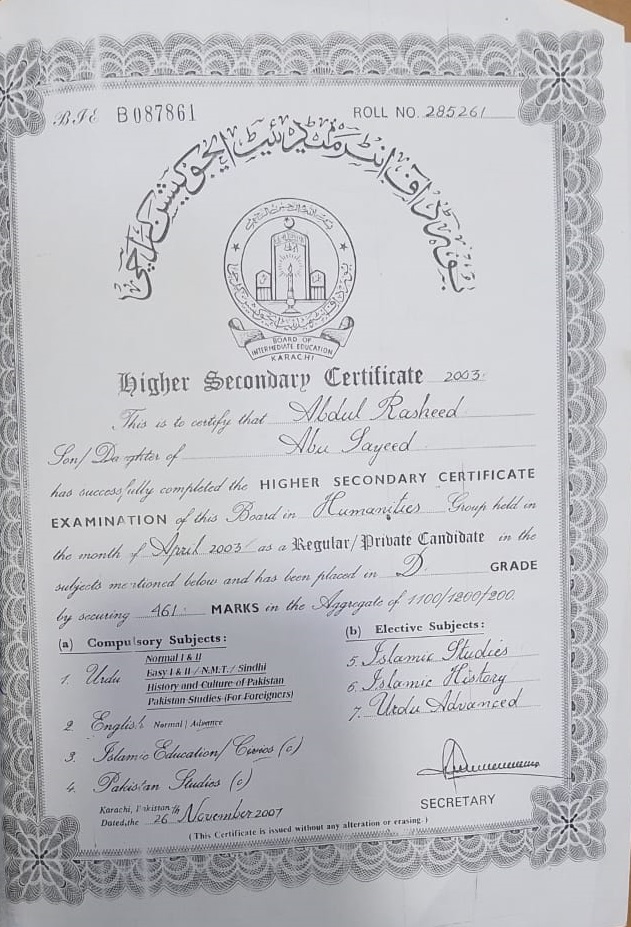 BIE B087861
ROLL NO. 285261
بورڈ آف انٹرمیڈیٹ ایجوکیشن کراچی
BOARD OF
INTERMEDIATE EDUCATION
KARACHI
Higher Secondary Certificate 2003
This is to certify that Abdul Rasheed
Son/Daughter of Abu Sayeed
has successfully completed the HIGHER SECONDARY CERTIFICATE
EXAMINATION of this Board in Humanities Group held in
the month of April 2003 as a Regular/Private Candidate in the
subjects mentioned below and has been placed in D GRADE
by securing 461 MARKS in the Aggregate of 1100/1200/200.
(a) Compulsory Subjects:
1. Urdu
Normal I & II
Easy I & II / N.M.T. / Sindhi
History and Culture of Pakistan
Pakistan Studies (For Foreigners)
2. English Normal / Advance
3. Islamic Education/Civics (c)
4. Pakistan Studies (c)
(b) Elective Subjects:
5. Islamic Studies
6. Islamic History
7. Urdu Advanced
SECRETARY
Karachi, Pakistan
Dated, the 26th November 2007
(This Certificate is issued without any alteration or erasing.)